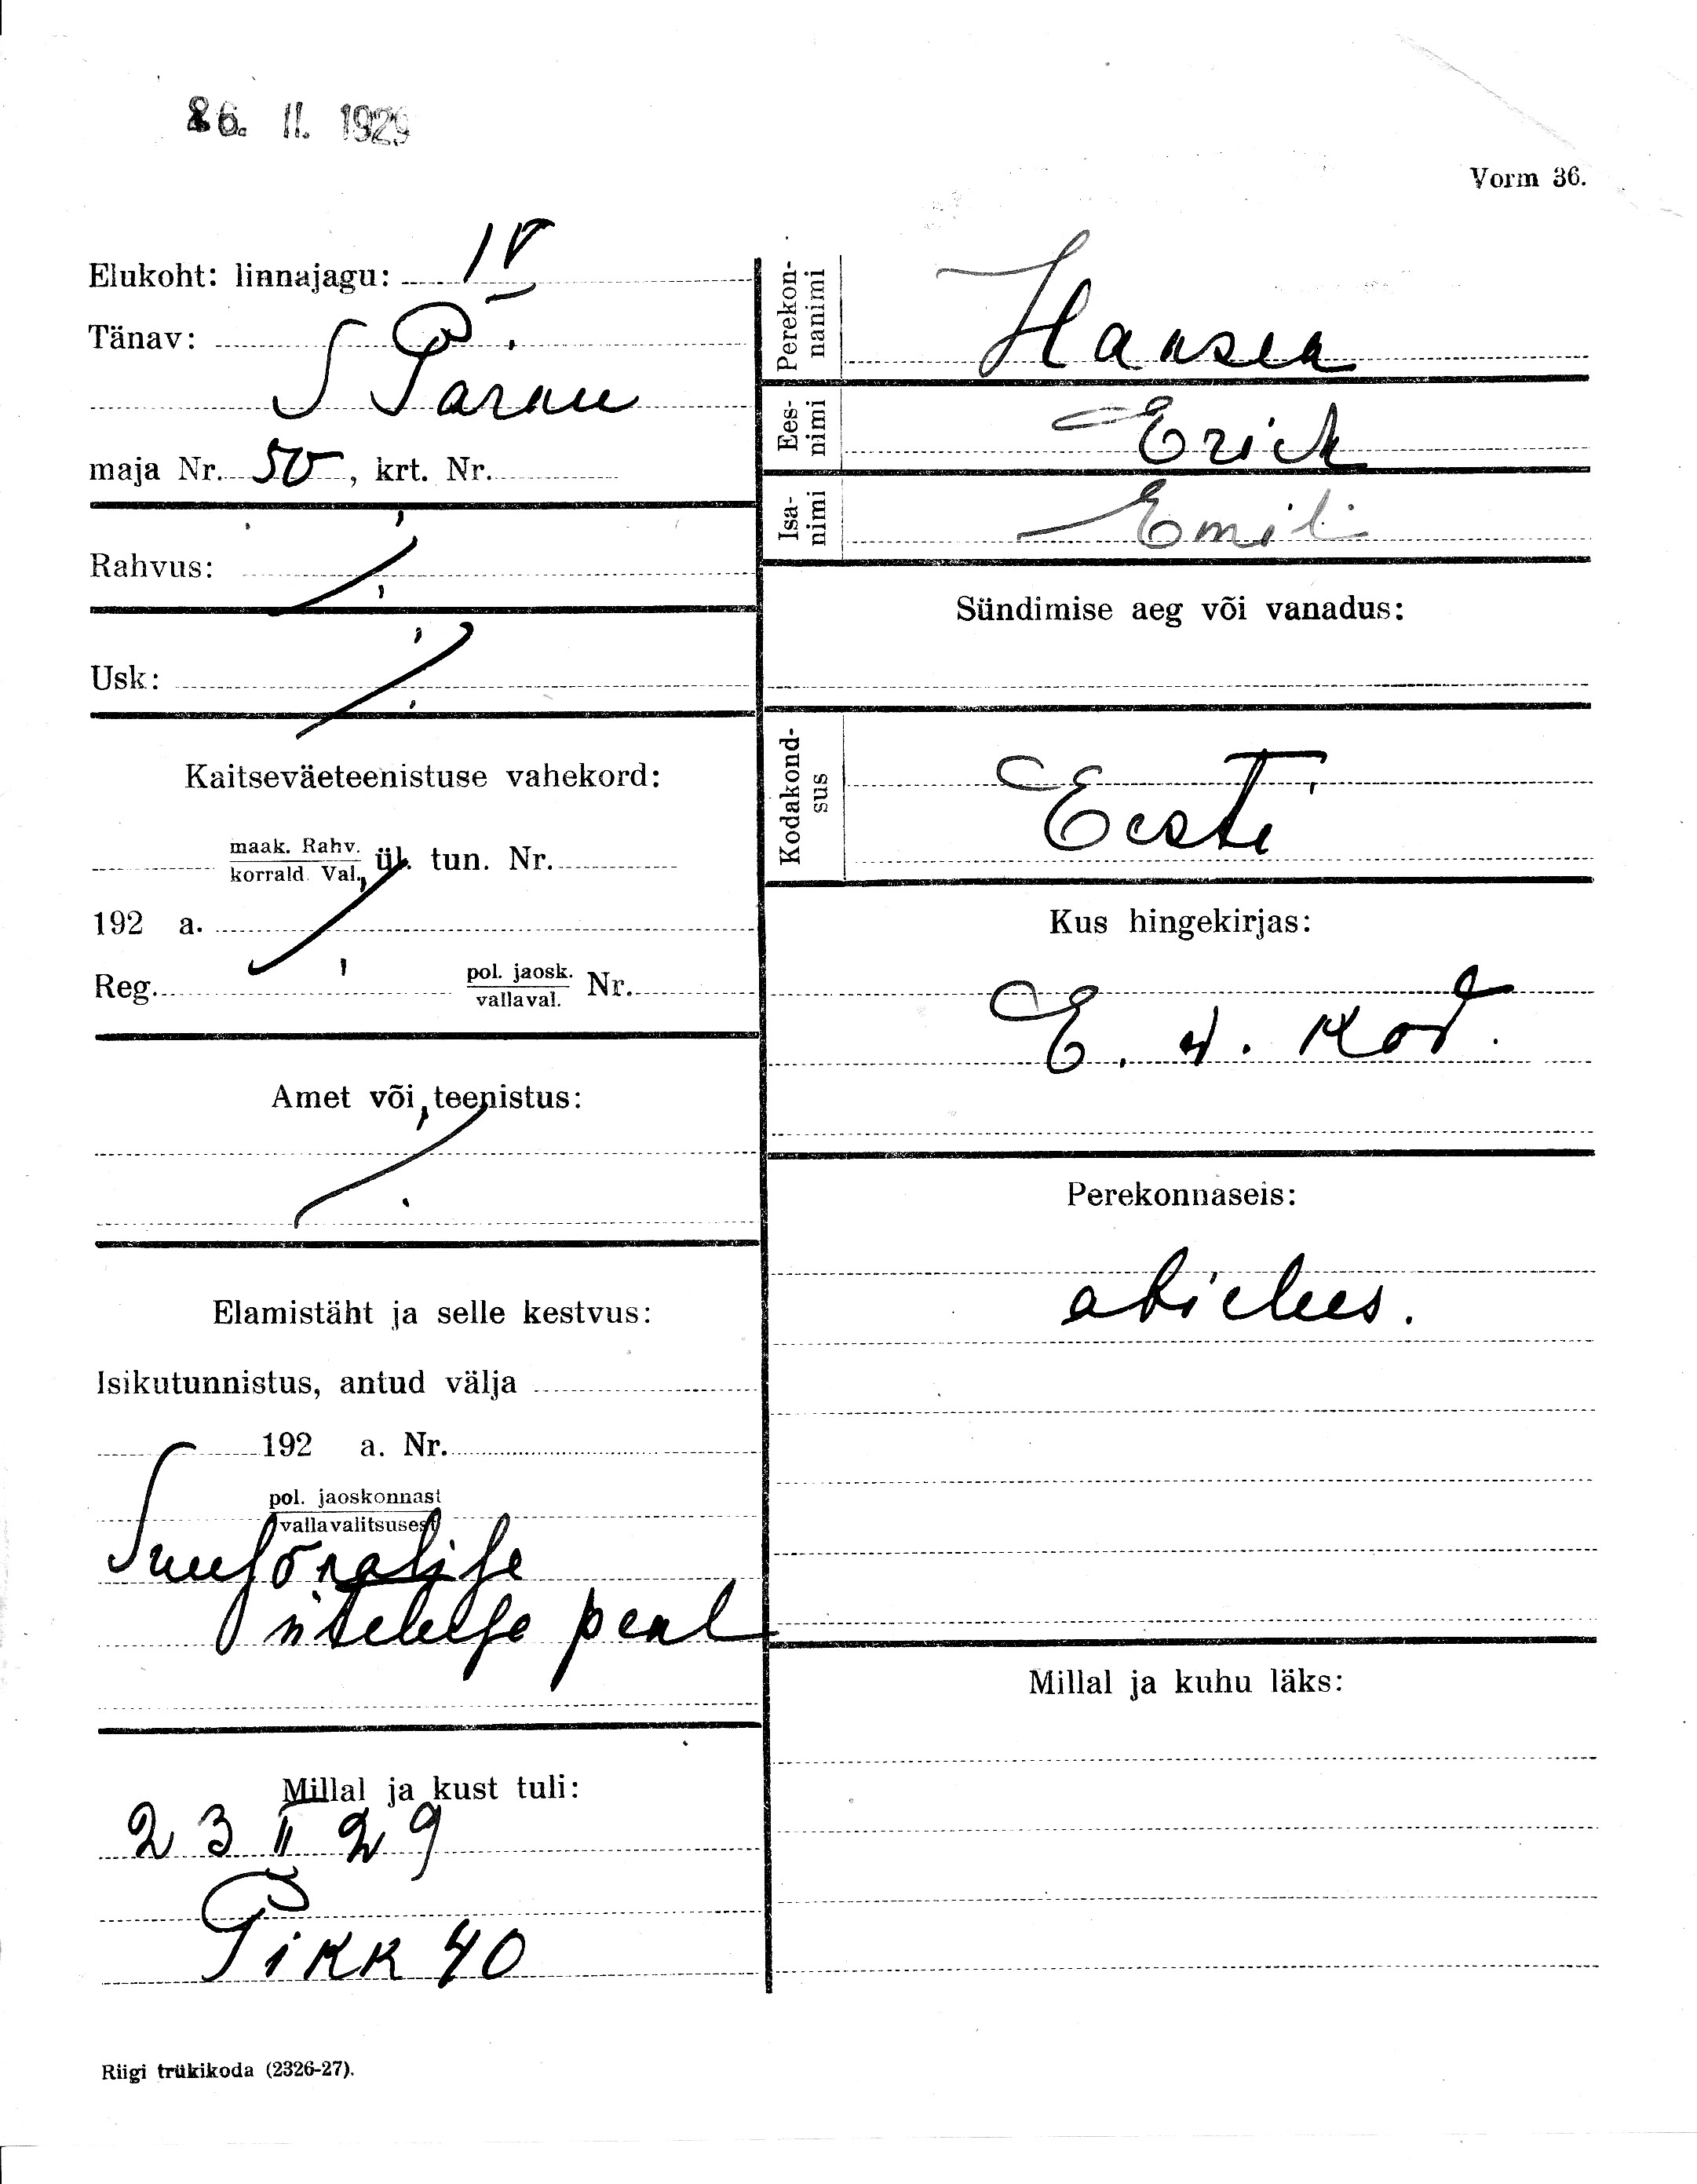 26. II. 1929
Vorm 36.
Elukoht: linnajagu: IV
Tänav: S Pärnu
maja Nr. 50, krt. Nr.
Rahvus:
Usk:
Kaitseväeteenistuse vahekord:
maak. Rahv. korrald. Val. ül. tun. Nr.
192 a.
Reg. pol. jaosk. vallaval. Nr.
Amet või teenistus:
Elamistäht ja selle kestvus:
Isikutunnistus, antud välja
192 a. Nr.
pol. jaoskonnast
vallavalitsusest
Suusõnalise
üteluse peal
Millal ja kust tuli:
23 II 29
Pikk 40
Perekonnanimi Hansen
Eesnimi Erich
Isanimi Emili
Sündimise aeg või vanadus:
Kodakondsus Eesti
Kus hingekirjas:
E. v. kod.
Perekonnaseis:
abielus.
Millal ja kuhu läks:
Riigi trükikoda (2326-27).